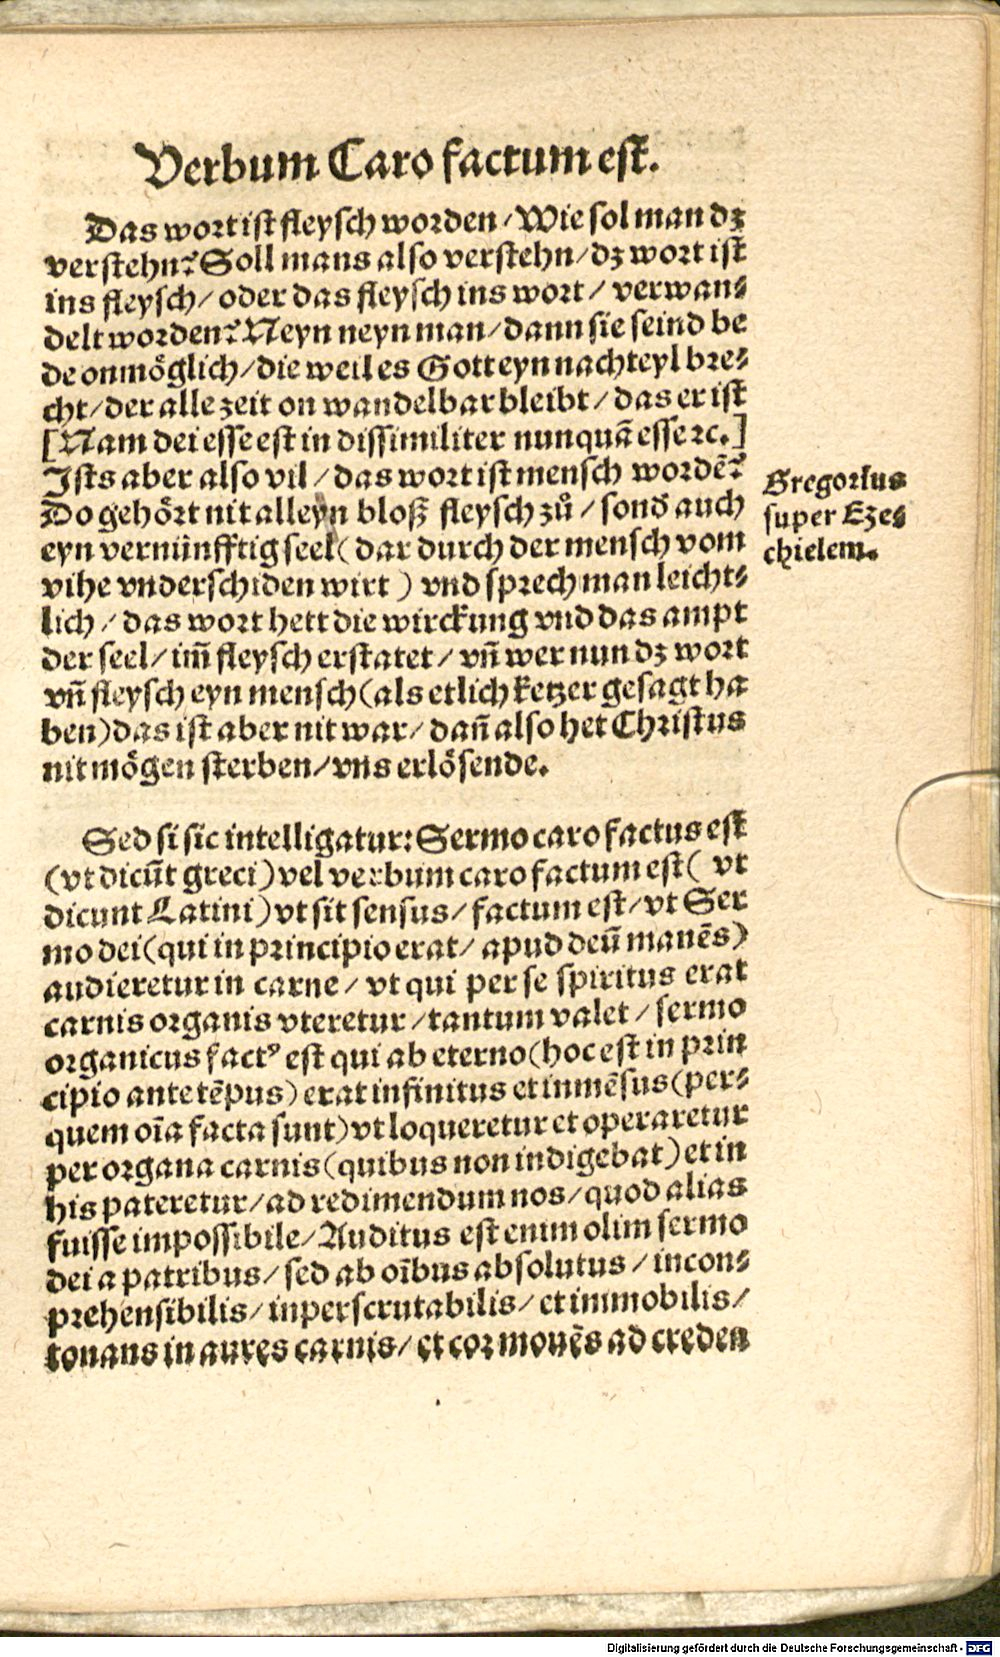 Verbum Caro factum est.
Das wort ist fleysch worden / Wie sol man dz
verstehn? Soll mans also verstehn / dz wort ist
ins fleysch / oder das fleysch ins wort / verwan⸗
delt worden? Neyn neyn man / dann sie seind be
de onmöglich / die weil es Gott eyn nachteyl bre⸗
cht / der alle zeit on wandelbar bleibt / das er ist
[Nam dei esse est in dissimiliter nunquā esse ꝛc.]
Ists aber also vil / das wort ist mensch wordē?
Do gehört nit alleyn bloß fleysch zů / sond̄ auch
eyn vernünfftig seel ( dar durch der mensch vom
vihe vnderschiden wirt ) vnd sprech man leicht⸗
lich / das wort hett die wirckung vnd das ampt
der seel / im̄ fleysch erstatet / vn̄ wer nun dz wort
vn̄ fleysch eyn mensch (als etlich ketzer gesagt ha
ben) das ist aber nit war / dan̄ also het Christus
nit mögen sterben / vns erlösende.
Gregorius
super Eze⸗
chielem.
Sed si sic intelligatur: Sermo caro factus est
(vt dicūt greci) vel verbum caro factum est ( vt
dicunt Latini) vt sit sensus / factum est / vt Ser
mo dei (qui in principio erat / apud deū manēs)
audieretur in carne / vt qui per se spiritus erat
carnis organis vteretur / tantum valet / sermo
organicus factꝰ est qui ab eterno (hoc est in prin
cipio ante tēpus) erat infinitus et inmēsus (per⸗
quem oīa facta sunt) vt loqueretur et operaretur
per organa carnis (quibus non indigebat) et in
his pateretur / ad redimendum nos / quod alias
fuisse impossibile / Auditus est enim olim sermo
dei a patribus / sed ab oībus absolutus / incon⸗
prehensibilis / inperscrutabilis / et immobilis /
tonans in aures carnis / et cor mouēs ad creden
Digitalisierung gefördert durch die Deutsche Forschungsgemeinschaft - DFG